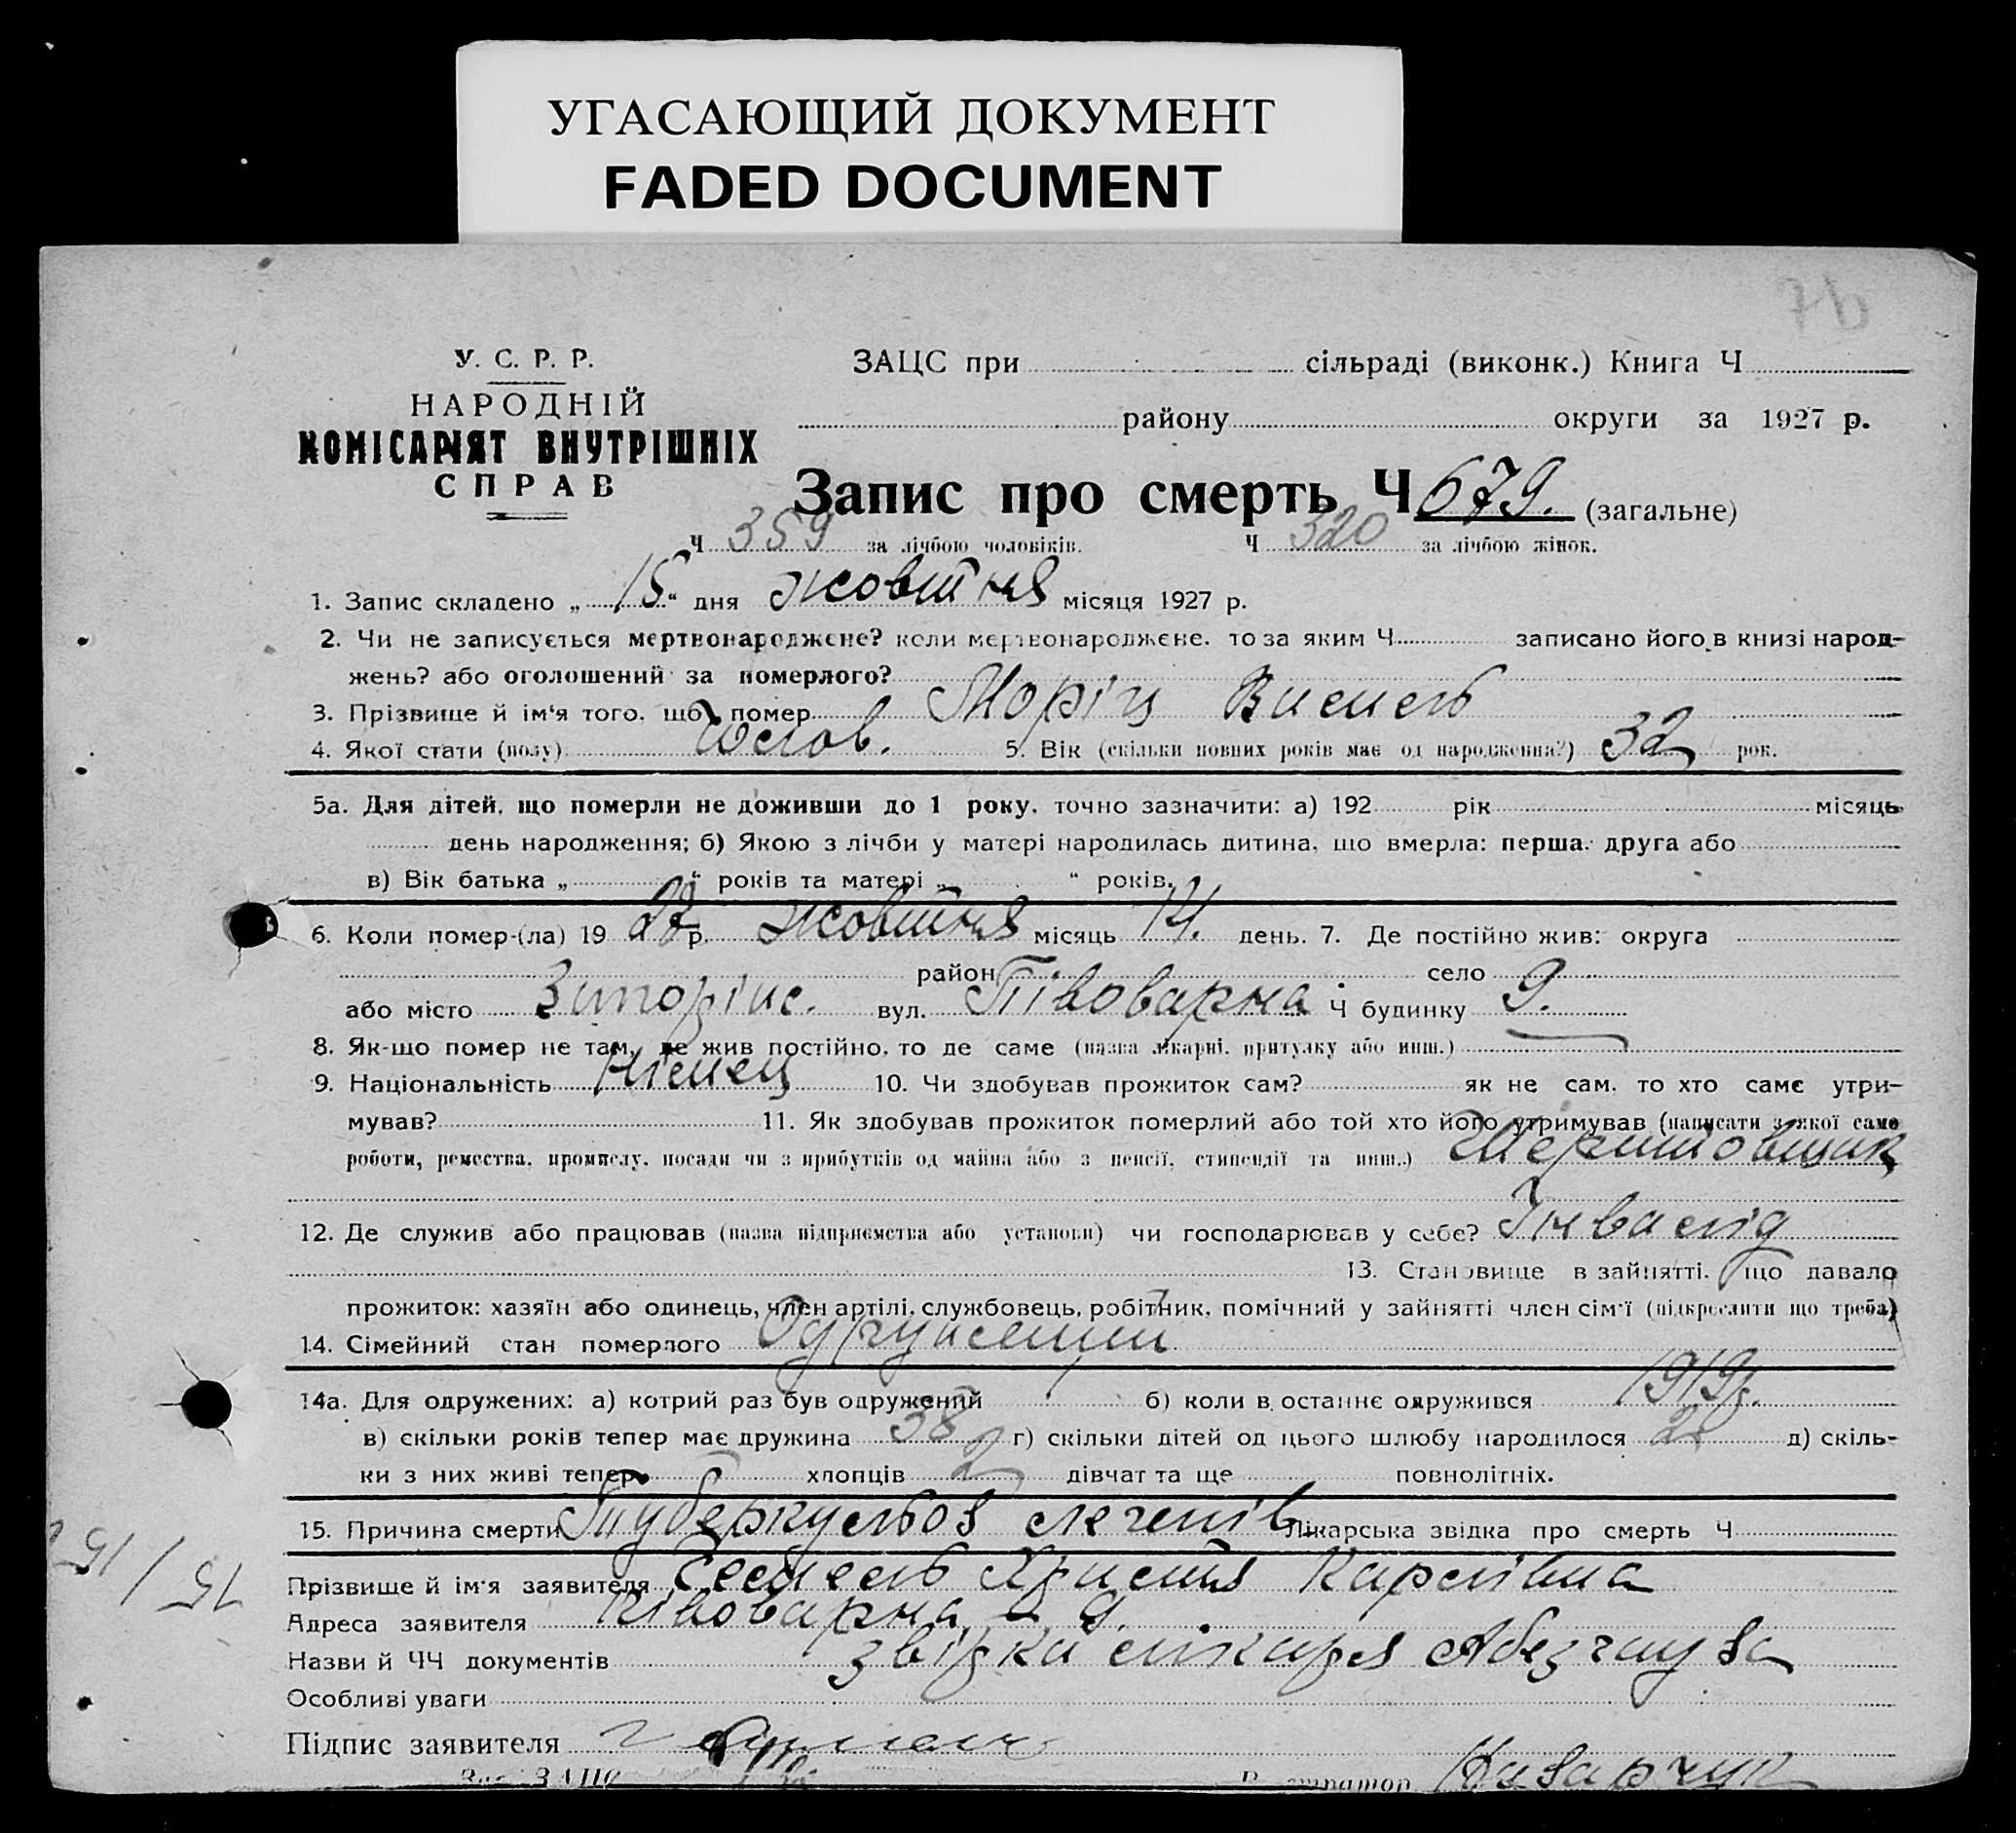 УГАСАЮЩИЙ ДОКУМЕНТ
FADED DOCUMENT
У. С. Р. Р.
НАРОДНІЙ
КОМІСАРІЯТ ВНУТРІШНІХ
СПРАВ
ЗАЦС при сільраді (виконк.) Книга Ч
району округи за 1927 р.
Запис про смерть Ч 679. (загальне)
Ч 359 за лічбою чоловіків. Ч 320 за лічбою жінок.
1. Запис складено „ 15 “ дня жовтня місяця 1927 р.
2. Чи не записується мертвонароджене? коли мертвонароджене, то за яким Ч записано його в книзі народ-
жень? або оголошений за померлого?
3. Прізвище й ім‘я того, що помер Моріц
4. Якої стати (полу) чолов. 5. Вік (скільки повних років має од народження?) 32 рок.
5а. Для дітей, що померли не доживши до 1 року, точно зазначити: а) 192 рік місяць
день народження; б) Якою з лічби у матері народилась дитина, що вмерла: перша, друга або
в) Вік батька „ “ років та матері „ “ років.
6. Коли помер-(ла) 19 27 р. жовтня місяць 14. день. 7. Де постійно жив: округа
район село
або місто вул. Півоварна Ч будинку 9.
8. Як-що помер не там, де жив постійно, то де саме (назва лікарні, притулку або инш.)
9. Національність Німець 10. Чи здобував прожиток сам? як не сам, то хто саме утри-
мував? 11. Як здобував прожиток померлий або той хто його утримував (написати з якої саме
роботи, ремества, промислу, посади чи з прибутків од майна або з пенсії, стипендії та инш.)
12. Де служив або працював (назва підприємства або установи) чи господарював у себе? Інвалід
13. Становище в зайнятті, що давало
прожиток: хазяїн або одинець, член артілі, службовець, робітник, помічний у зайнятті член сім‘ї (підкреслити що треба)
14. Сімейний стан померлого Одружений
14а. Для одружених: а) котрий раз був одружений 1 б) коли в останнє одружився 1919р.
в) скільки років тепер має дружина 38 г) скільки дітей од цього шлюбу народилося 2 д) скіль-
ки з них живі тепер хлопців 2 дівчат та ще повнолітніх.
15. Причина смерти Туберкульоз легенів Лікарська звідка про смерть Ч
Прізвище й ім‘я заявителя Карлівна
Адреса заявителя Півоварна 9.
Назви й ЧЧ документів звідка лікаря
Особливі уваги
Підпис заявителя